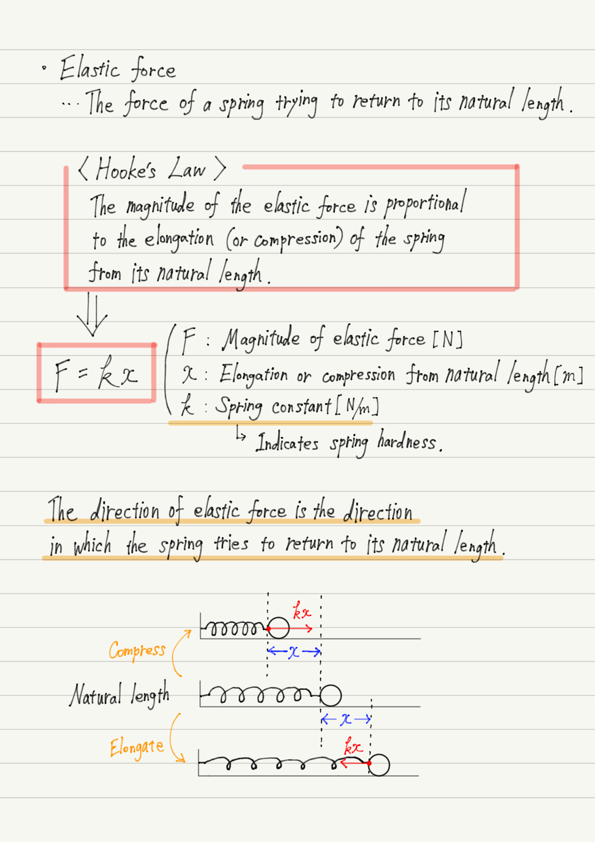 • Elastic force
... The force of a spring trying to return to its natural length.
〈 Hooke's Law 〉
The magnitude of the elastic force is proportional
to the elongation (or compression) of the spring
from its natural length.
⇓
F = kx
F : Magnitude of elastic force [N]
x : Elongation or compression from natural length [m]
k : Spring constant [N/m]
↳ Indicates spring hardness.
The direction of elastic force is the direction
in which the spring tries to return to its natural length.
kx
Compress
x
Natural length
x
Elongate
kx